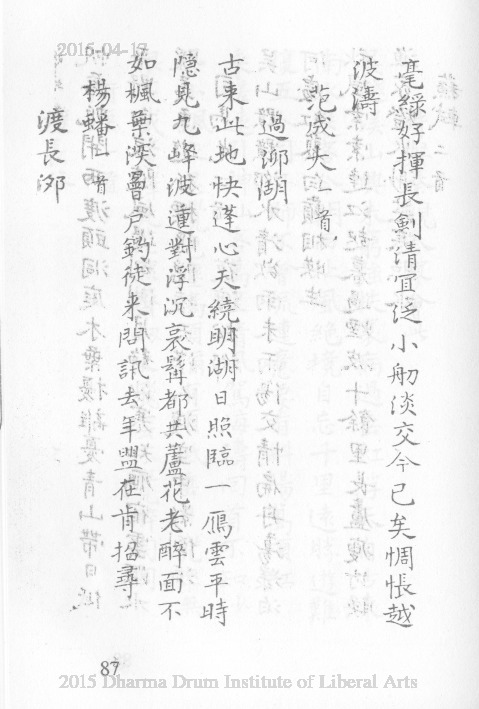 2015-04-17
毫綠好揮長劍清宜泛小舠淡交今已矣惆悵越
波濤
范成大一首
過泖湖
古来此地快蓬心天繞明湖日照臨一鴈雲平時
隐見九峰波對浮沉哀髯都共蘆花老醉面不
如楓葉深罾户釣徒来問訊去年盟在肯招尋
楊蟠一首
渡長泖
87
2015 Dharma Drum Institute of Liberal Arts